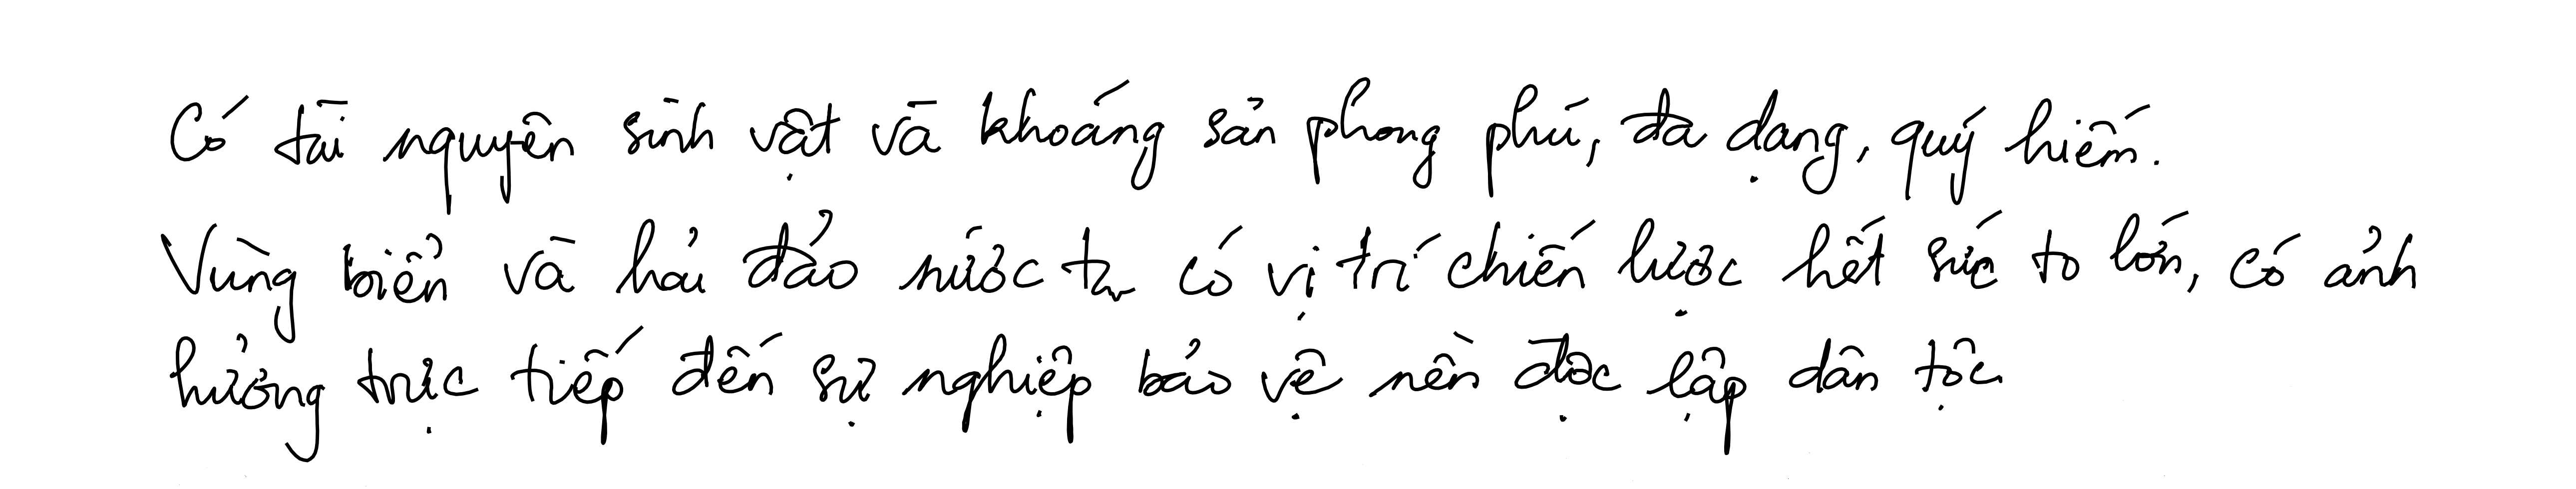 Có tài nguyên sinh vật và khoáng sản phong phú, đa dạng, quý hiếm.
Vùng biển và hải đảo nước ta có vị trí chiến lược hết sức to lớn, có ảnh
hưởng trực tiếp đến sự nghiệp bảo vệ nền độc lập dân tộc